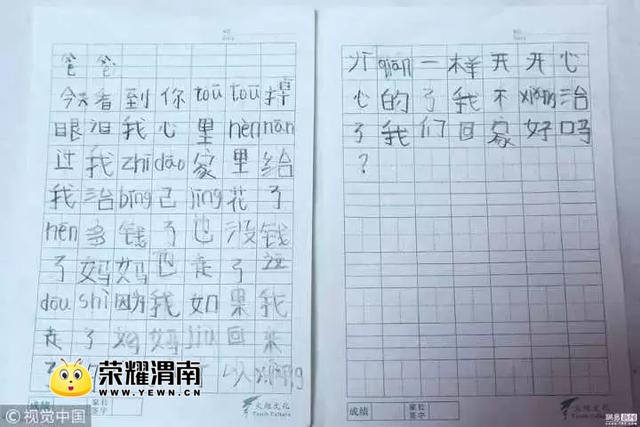 爸爸
今天看到你tōu tōu掉
眼泪我心里hěn nán
过我zhī dào家里给
我治bìng已jīng花了
hěn多钱了也没钱
了妈妈也走了这
dōu shì因为我如果我
走了妈妈jiù回来
了
以
xiàng
荣耀渭南
WWW.YEWN.CN
成绩
家长
签字
火炬文化
Torch Culture
© 视觉中国
qián一样开开心
心的了我不xiǎng治
了我们回家好吗
？
成绩
家长
签字
火炬文化
Torch Culture